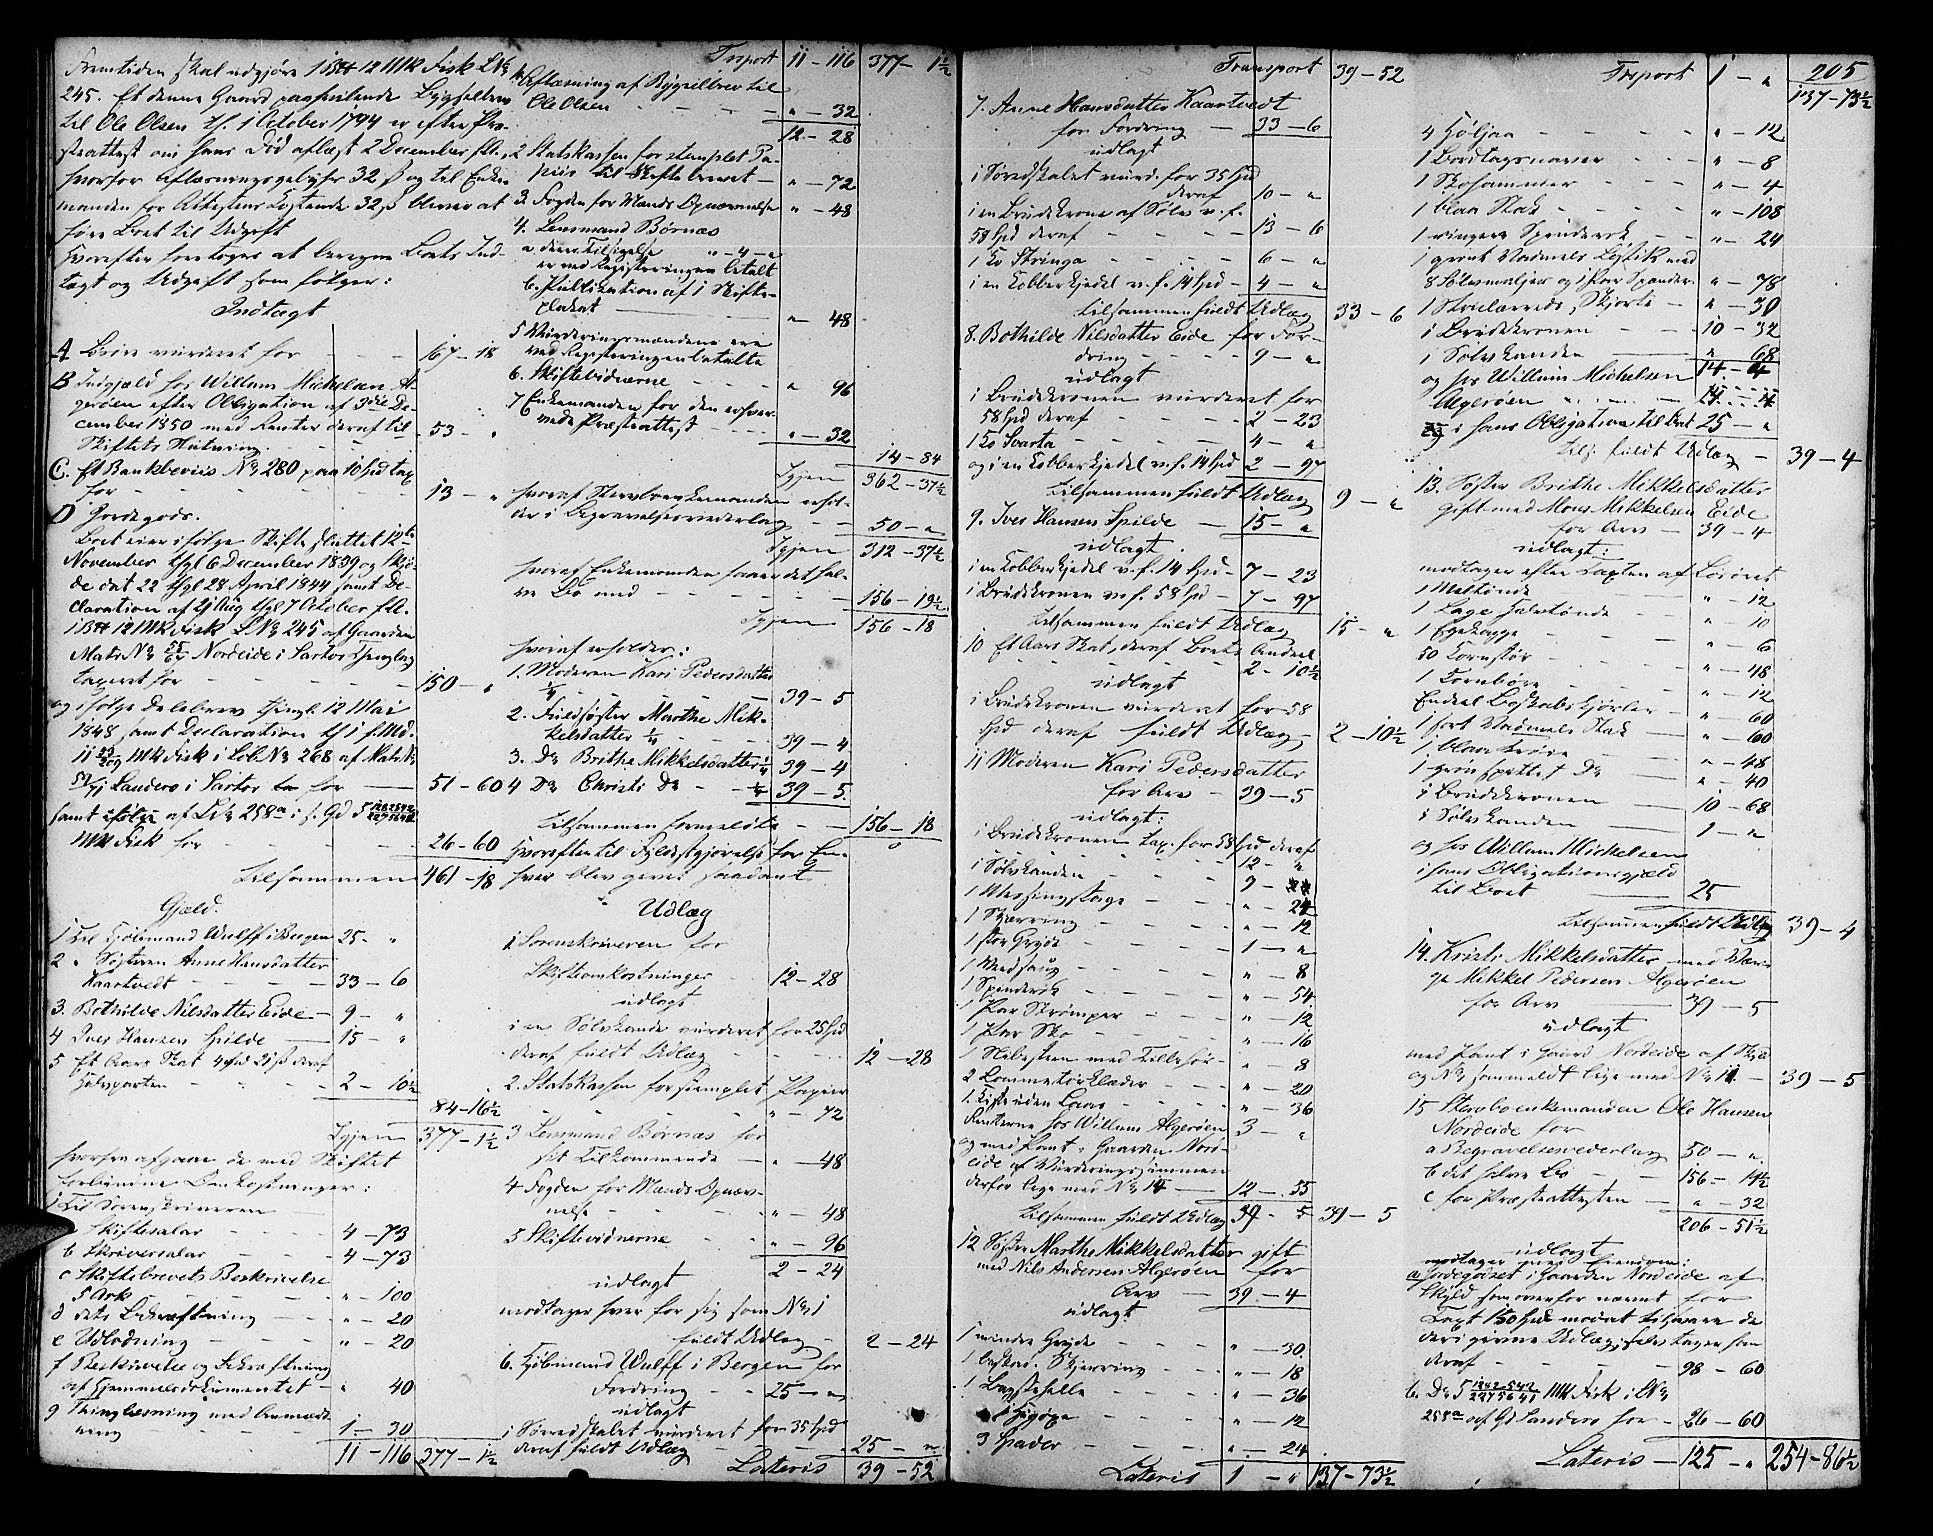 Fremtiden skal udgjøre 1 B℔ 12 Mk Fisk LNr
245. Et denne Gaard paahvilende Bygselbrev
til Ole Olsen tl. 1 October 1794 er efter Præ-
steattest om hans Død aflæst 2 December f.A.,
hvorfor Aflæsningsgebyhr 32 ß og til Enke-
manden for Attestens Kostende 32 ß bliver at
føre Boet til Udgift
Hvorefter foretoges at beregne Boets Ind-
tægt og Udgift som følger:
Indtægt
A Løsøre vurderet for - - - 167 - 18
B Indgjæld hos Willum Mickelsen Al-
gerøen efter Obligation af 3die De-
cember 1850 med Renter deraf til
Skiftets Slutning. 53 - "
C. Et Bankbeviis Nr 280 paa 10 Spd tax
for - - - 13 - "
D Jordegods.
Boet eier i følge Skifte sluttet 12te
November thgl 6 December 1839 og Skjø-
de dat 22 thgl 28 April 1844 samt De-
claration af Aug thgl 7 October f.A.
1 B℔ 12 Mk Fisk LNr 245 af Gaarden
Mats Nr 55/64 Nordeide i Sartor Thinglag
taxeret for - - - 150 - "
og ifølge Delebrev thingl. 12 Mai
1848 samt Declaration
11 Mk Fisk i Løb Nr 268 af Mats Nr
Landero i Sartor for 51 - 60
samt af LNr 258a i s. Gd 5
Mk Fisk for - - - 26 - 60
Tilsammen 461 - 18
Gjæld.
1 Til Kjøbmand Wulff i Bergen 25 - "
2 " Søsteren Anne Hansdatter
Kaartvedt - - - 33 - 6
3. Bothilde Nilsdatter Eide - 9 - "
4 Iver Hansen Spilde - 15 - "
5 Et Aars Skat 4 Spd 21 ß deraf
Halvparten - - - 2 - 10½
84 - 16½
Igjen 377 - 1½
hvorfra afgaae de med Skiftet
forbundne Omkostninger:
1 Til Sorenskriveren
a Skiftesalær - - - 4 - 73
b Skriversalær - - - 4 - 73
c Skiftebrevets Beskrivelse
5 Ark - - - " - 100
d dets Bekræftning - - - " - 20
e Udlodning - - - " - 20
f Beskrivelse og Bekræftning
af Hjemmelsdokumentet - " 40
g Thinglæsning med Anmærk-
ning 1 - 30
11 - 116 377 - 1½
Trsport 11 - 116 377 - 1½
h Aflæsning af Bygselbrev til
Ole Olsen - - - " - 32
12 - 28
2 Statskassen for stemplet Pa-
piir til Skiftebrevet - " - 72
3. Fogden for Mænds Opnævnelse " - 48
4. Lensmand Børnæs
a dens Tilsigelse " - 4 - "
er ved Registreringen betalt
b. Publication af 1 Skifte-
placat - - - " - 48
5 Vurderingsmændene ere
ved Registeringen betalte
6. Skiftevidnerne - - - " 96
7 Enkemanden for den erhver-
vede Præsteattest - - - " - 32
14 - 84
Igjen 362 - 37½
hvoraf Stervboenkemanden erhol-
der i Begravelsesvederlag - - 50 - "
Igjen 312 - 37½
hvoraf Enkemanden faaer det hal-
ve Bo med - - - 156 - 19½
Igjen 156 - 18
hvoraf erholder:
1. Moderen Kari Pedersdatter
¼ - - - 39 - 5
2. Fuldsøster Marthe Mik-
kelsdatter ¼ - - - 39 - 4
3. Do Brithe Mikkelsdatter ¼ 39 - 4
4 Do Christi Do - - ¼ 39 - 5.
Tilsammen formeldte - - 156 - 18
Hvorefter til Fyldestgjørelse for En-
hver blev gjort saadant
Udlæg
1 Sorenskriveren for
Skifteomkostninger - 12 - 28
udlagt
i en Sølvkande vurderet for 25 Spd
deraf fuldt Udlæg - - - 12 - 28
2. Statskassen for stemplet Papiir
- - - " - 72
3 Lensmand Børnæs for
sit Tilkommende - " - 48
4 Fogden for Mænds Opnæv-
nelse - - - " - 48
5 Skiftevidnerne - - " - 96
2 - 24
udlagt
modtager hver for sig som Nr 1
fuldt Udlæg - 2 - 24
6. Kjøbmand Wulff i Bergen for
Fordring - - 25 - "
udlagt
i Søreidskabet vurderet for 35 Spd
deraf fuldt Udlæg - - - 25 - "
Lateris 39 - 52
Transport 39 - 52
7. Anne Hansdatter Kaartvedt
for Fordring - 33 - 6
udlagt
i Søreidskabet vurd. for 35 Spd
deraf 10 - "
i en Brudekrone af Sølv v. f.
58 Spd deraf - - - 13 - 6
1 Ko Stringa - - - 6 - "
i en Kobberkjedel v. f. 14 Spd - 4 - "
tilsammen fuldt Udlæg 33 - 6
8. Bothilde Nilsdatter Eide for For-
dring - - - 9 - "
udlagt
i Brudekronen vurderet for
58 Spd deraf - - 2 - 23
1 Ko Svarta - - - 4 - "
og i en Kobberkjedel v. f. 14 Spd 2 - 97
tilsammen fuldt Udlæg 9 - "
9. Iver Hansen Spilde - 15 - "
udlagt
i en Kobberkjedel v. f. 14 Spd - 7 - 23
i Brudekronen v. f. 58 Spd - 7 - 97
tilsammen fuldt Udlæg 15 - "
10 Et Aars Skat, deraf Boets Andeel
2 - 10½
udlagt
i Brudekronen vurderet for 58
Spd deraf fuldt Udlæg - 2 - 10½
11 Moderen Kari Pedersdatter
for Arv - 39 - 5
udlagt:
i Brudekronen tax. for 58 Spd deraf
12 - "
i Sølvkanden - - -
1 Messingstage - - - " - 24
1 Skjærring - - - " - 12
1 stor Gryde - - - 1 - "
1 Vedsaug - - - " - 8
1 Spinderok - - - " - 54
1 Par Strømper - - - " - 12
1 Par Sko - - - " - 16
1 Slibesteen med Tilbehør - " - 8
2 Lommetørklæder - - - " - 20
1. Kiste uden Laas - - - " - 36
Renterne hos Willum Algerøen 3 - "
og med Pant i Gaarden Nord-
eide af Vurderingssummen
derfor lige med Nr 14 - 12 - 55
tilsammen fuldt Udlæg 39 - 5 39 - 5
12 Søster Marthe Mikkelsdatter gift
med Nils Andersen Algerøen for
Arv - 39 - 4
udlagt
1 mindre Gryde - - - " - 30
1 beskad. Skjerring - - " - 18
1 Bagstehelle - - - " - 36
1 - - - " - 12
3 Spader - - - " - 24
Lateris 1 - " 137 - 73½
205
Trsport 1 - " 137 - 73½
4 Høljaa - - - " - 12
1 Bordtagsnaver - - - " - 8
1 Skohammer - - - " - 4
1 blaa Stak - - - " - 108
1 ringere Spinderok - - " - 24
1 grønt Vadmels Livstik med
8 Sølvmaljer og 1 Par Spender. " - 78
1 Strielærreds Skjorte - " - 30
i Brudekronen - - - 10 - 32
i Sølvkanden - - - " 68
og hos Willum Mickelsen 14 - 4
Algerøen
i hans Obligation til Boet 25 - "
tils. fuldt Udlæg - 39 - 4
13. Søster Brithe Mikkelsdatter
gift med Mons Mikkelsen Eide
for Arv - 39 - 4
udlagt:
modtager efter Taxten af Løsøret
1 Meltønde - - - " - 12
1 Lage Halvtønde - - " - 10
1 Egekagge - - - " - 6
50 Kornstør - - - " - 48
1 Kornbøre - - - " - 12
Endeel Boskabs Kjørler - " - 60
1 sort Vadmels Stak - - " - 60
1 blaa Trøie - - - " - 48
1 grøn sprettet Do - - " - 40
i Brudekronen - - 10 - 68
i Sølvkanden - - 1 - "
og hos Willum Mickelsen
i hans Obligationsgjæld
til Boet - 25
tilsammen fuldt Udlæg 39 - 4
14. Kristi Mikkelsdatter med Vær-
ge Mikkel Pedersen Algerøen
for Arv - 39 - 5
udlagt
med Pant i Gaard Nordeide af Skyld
og Nr formeldt lige med Nr 11. - 39 - 5
15 Stervboenkemanden Ole Hansen
Nordeide for
a Begravelsesvederlag 50 - "
b det halve Bo - 156 - 19½
c for Præsteattesten - " - 32
206 - 51½
udlagt
modtager med Eiendom:
a Jordegodset i Gaarden Nordeide af
Skyld som overfor nævnt for
Taxt 150 Spd modat tilsvare de
deri givne Udlæg, selv tager han
deraf - - - 98 - 60
b. Do 5 Mk Fisk i LNr
258a af Gd Landero for - 26 - 60
Lateris - 125 - " 254 - 86½